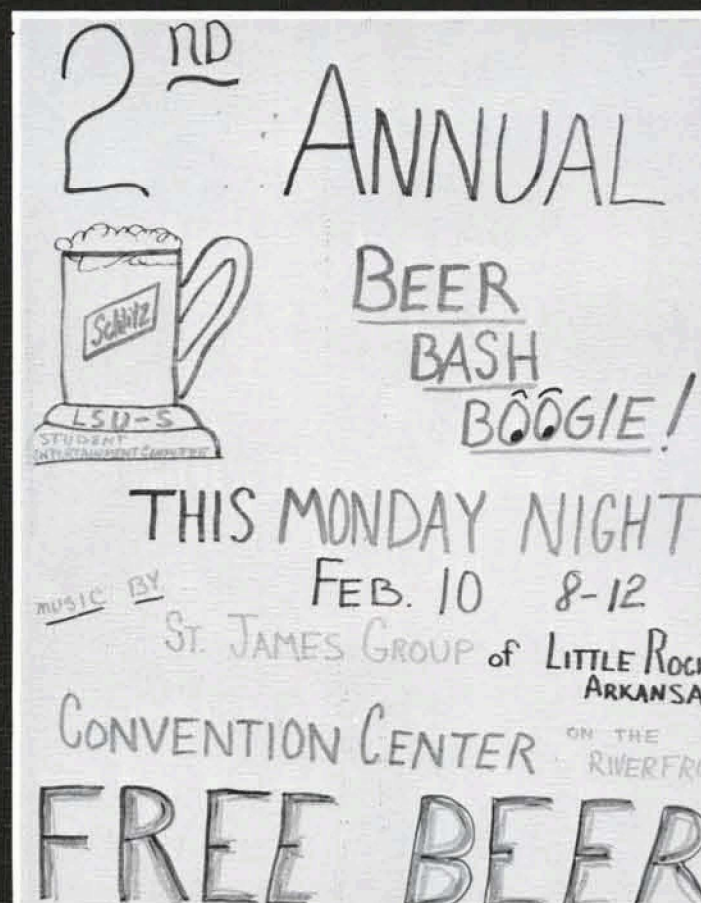 2ND
ANNUAL
BEER
BASH
BOOGIE!
Schlitz
LSU-S
STUDENT
ENTERTAINMENT COMMITTEE
THIS MONDAY NIGHT
FEB. 10 8-12
MUSIC BY
ST. JAMES GROUP of LITTLE ROCK
ARKANSA
CONVENTION CENTER ON THE
RIVERFRO
FREE BEER